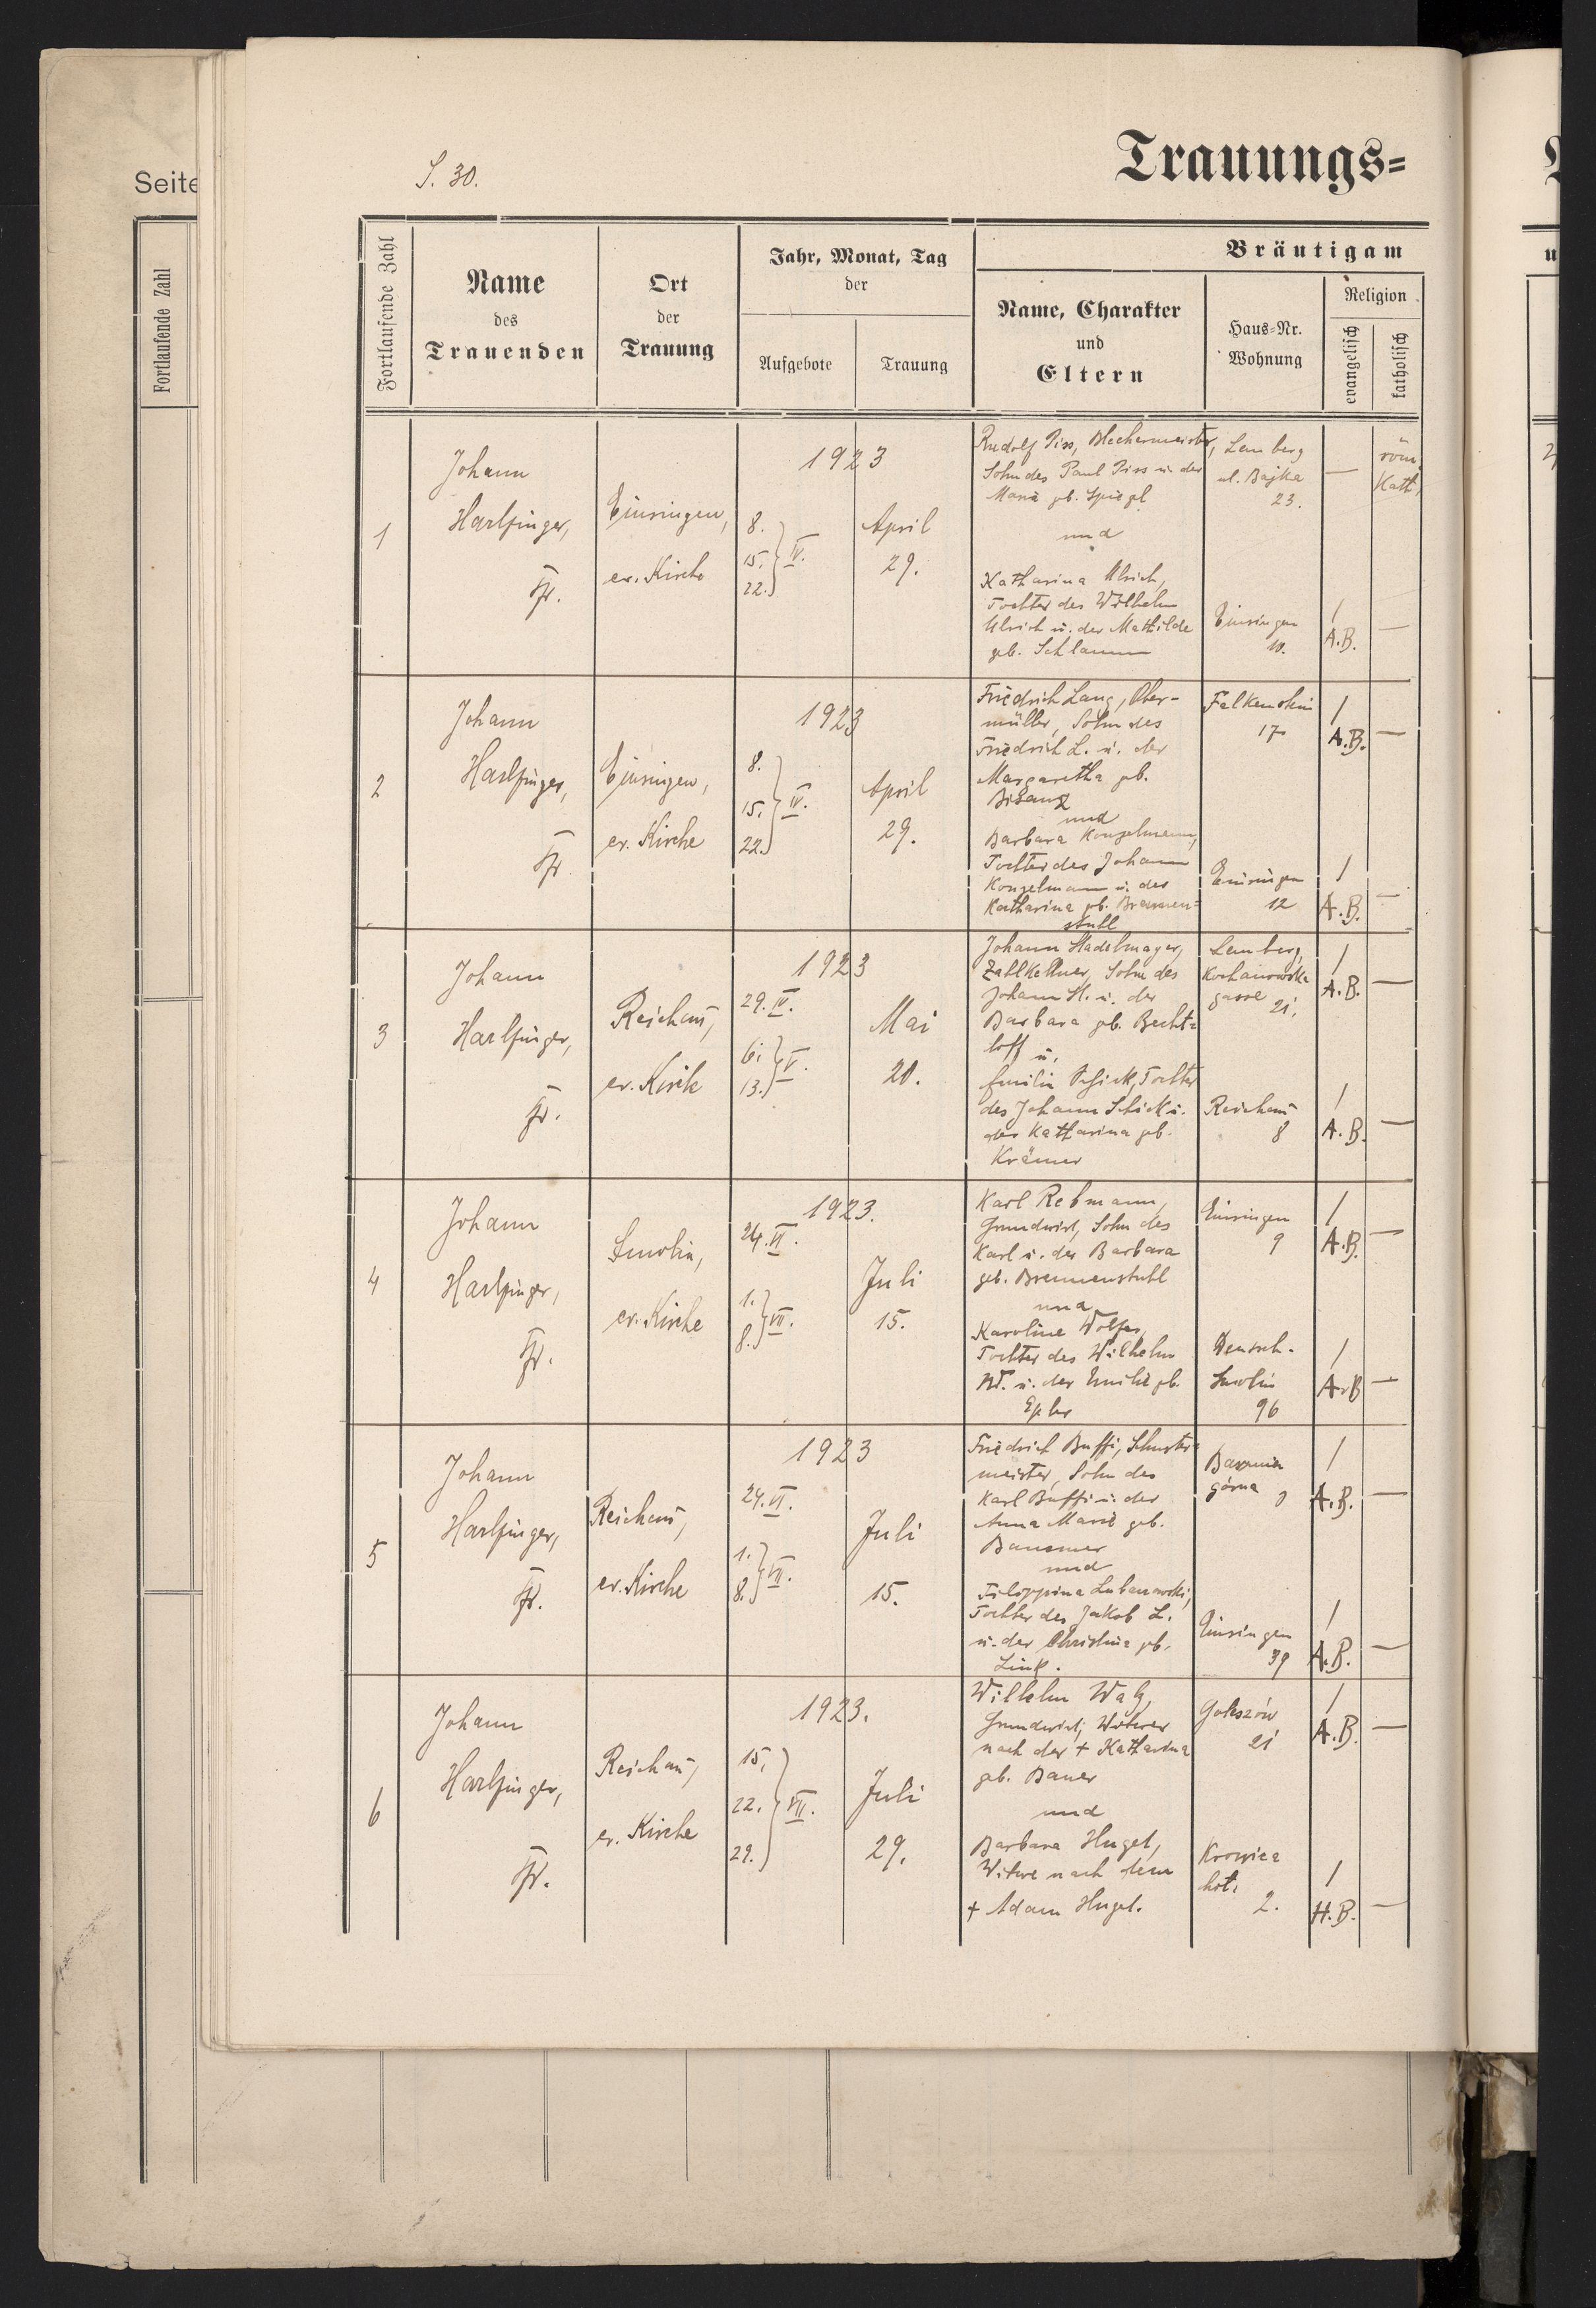 Seite
Fortlaufende Zahl
S. 30.
Trauungs=
Fortlaufende Zahl
Name
des
Trauenden
Ort
der
Trauung
Jahr, Monat, Tag
der
Aufgebote
Trauung
Bräutigam
Name, Charakter
und
Eltern
Haus=Nr.
Wohnung
Religion
evangelisch
katholisch
1
Johann
Harlfinger,
Pfr.
Einsingen,
ev. Kirche
1923
8.
15. IV.
22.
April
29.
Rudolf Piss, Blechermeister,
Sohn des Paul Piss u. der
Maria gb. Spiegl
und
Katharina Ulrich,
Tochter des Wilhelm
Ulrich u. der Mathilde
geb. Schlamm
Lemberg
ul. Bajka
23.
—
röm.
Kath.
Einsingen
10.
/
A.B.
—
2
Johann
Harlfinger,
Pfr.
Einsingen,
ev. Kirche
1923
8.
15. IV.
22.
April
29.
Friedrich Lang, Ober-
müller, Sohn des
Friedrich L. u. der
Margaretha gb.
Bisanz
und
Barbara Konzelmann,
Tochter des Johann
Konzelmann u. der
Katharina gb. Brennen=
stuhl
Falkenstein
17
/
A.B.
—
Einsingen
12
/
A.B.
—
3
Johann
Harlfinger,
Pfr.
Reichau,
ev. Kirche
1923
29. IV.
6. V.
13.
Mai
20.
Johann Stadelmayer,
Zahlkellner, Sohn des
Johann St. u. der
Barbara gb. Becht=
loff u.
Emilie Schick, Tochter
des Johann Schick u.
der Katharina geb.
Krämer
Lemberg,
Kochanowska
gasse 21.
/
A.B.
—
Reichau
8
/
A.B.
—
4
Johann
Harlfinger,
Pfr.
Smolin,
ev. Kirche
1923.
24. VI.
1.
8. VII.
Juli
15.
Karl Rebmann,
Grundwirt, Sohn des
Karl u. der Barbara
geb. Brennenstuhl
und
Karoline Wolfer,
Tochter des Wilhelm
W. u. der Emilie gb.
Epler
Einsingen
9
/
A.B.
—
Deutsch-
Smolin
96
/
A.B
—
5
Johann
Harlfinger,
Pfr.
Reichau,
ev. Kirche
1923
24. VI.
1.
8. VII.
Juli
15.
Friedrich Buffi, Schuster=
meister, Sohn des
Karl Buffi u. der
Anna Maria geb.
und
Filippina Lubanowski,
Tochter des Jakob L.
u. der Christina gb.
Link.
górna
/
A.B.
—
Einsingen
39
/
A.B.
—
6
Johann
Harlfinger,
Pfr.
Reichau,
ev. Kirche
1923.
15.
22. VII.
29.
Juli
29.
Wilhelm Walz,
Grundwirt, Witwer
nach der + Katharina
geb. Bauer
und
Barbara Hugel,
Witwe nach dem
+ Adam Hugel.
21
/
A.B.
—
Krowica
hoł.
2.
/
H.B.
—